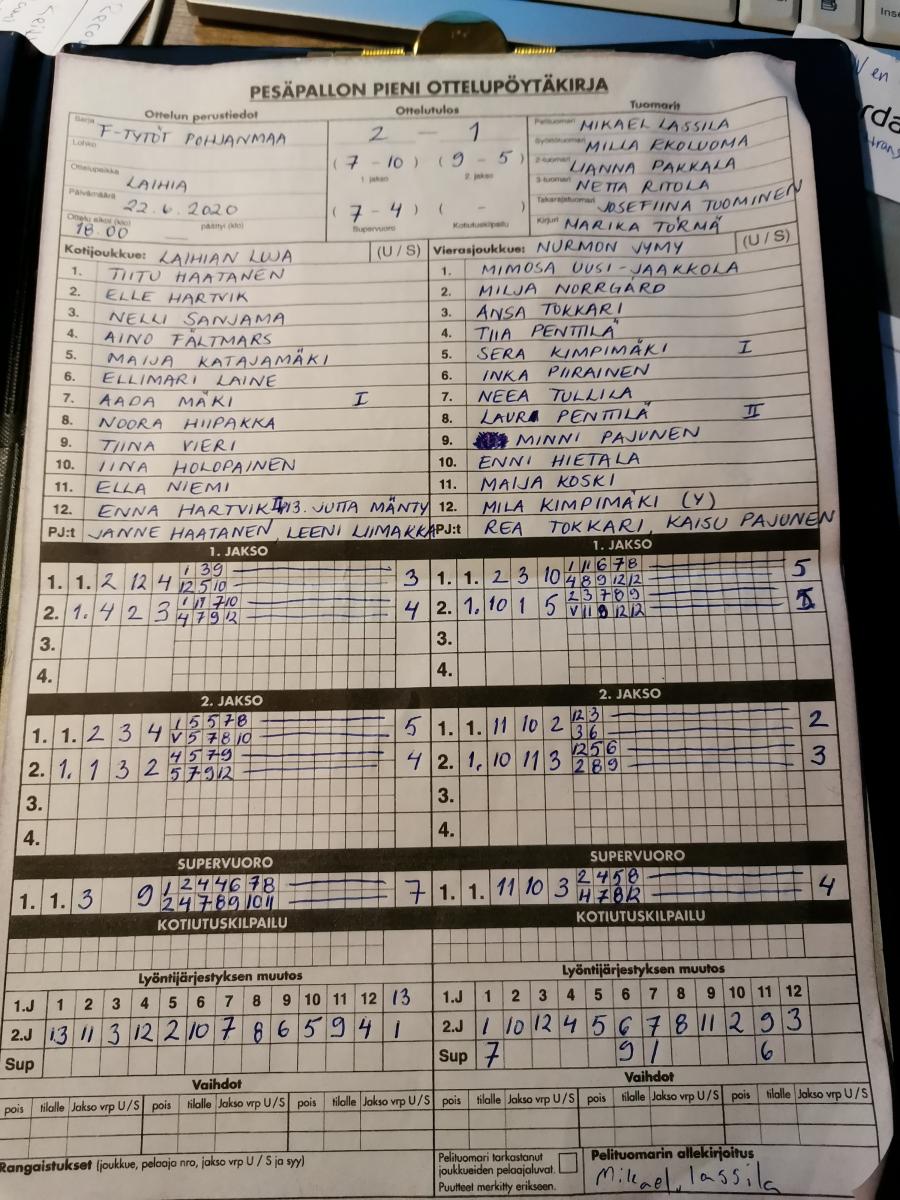 PESÄPALLON PIENI OTTELUPÖYTÄKIRJA
Ottelun perustiedot
Sarja F-TYTÖT POHJANMAA
Lohko
Ottelupaikka LAIHIA
Päivämäärä 22.6.2020
Ottelu alkoi (klo) 18.00 päättyi (klo)
Ottelutulos
2 – 1
(7 – 10) (9 – 5)
1. jakso 2. jakso
(7 – 4) ( – )
Supervuoro Kotiutuskilpailu
Tuomarit
Pelituomari MIKAEL LASSILA
Syöttötuomari MILLA EKOLUOMA
2-tuomari LIANNA PAKKALA
3-tuomari NETTA RITOLA
Takarajatuomari JOSEFIINA TUOMINEN
Kirjuri MARIKA TÖRMÄ
Kotijoukkue: LAIHIAN LUJA (U / S)
1. TIITU HAATANEN
2. ELLE HARTVIK
3. NELLI SANJAMA
4. AINO FÄLTMARS
5. MAIJA KATAJAMÄKI
6. ELLIMARI LAINE
7. AADA MÄKI I
8. NOORA HIIPAKKA
9. TIINA VIERI
10. IINA HOLOPAINEN
11. ELLA NIEMI
12. ENNA HARTVIK II 13. JUTTA MÄNTY
PJ:t JANNE HAATANEN, LEENI LIIMAKKA
Vierasjoukkue: NURMON JYMY (U / S)
1. MIMOSA UUSI-JAAKKOLA
2. MILJA NORRGÅRD
3. ANSA TOKKARI
4. TIIA PENTTILÄ
5. SERA KIMPIMÄKI I
6. INKA PIIRAINEN
7. NEEA TULLILA
8. LAURA PENTTILÄ II
9. MINNI PAJUNEN
10. ENNI HIETALA
11. MAIJA KOSKI
12. MILA KIMPIMÄKI (Y)
PJ:t REA TOKKARI, KAISU PAJUNEN
1. JAKSO
1. 1. 2 12 4 1 3 9 3
12 5 10
2. 1. 4 2 3 1 11 7 10 4
4 7 9 12
3.
4.
1. JAKSO
1. 1. 2 3 10 1 11 6 7 8 5
4 8 9 12 12
2. 1. 10 1 5 2 3 7 8 9
V 11 8 12 12
3.
4.
2. JAKSO
1. 1. 2 3 4 1 5 5 7 8 5
V 5 7 8 10
2. 1. 1 3 2 4 5 7 9 4
5 7 9 12
3.
4.
2. JAKSO
1. 1. 11 10 2 12 3 2
3 6
2. 1. 10 11 3 12 5 6 3
2 8 9
3.
4.
SUPERVUORO
1. 1. 3 9 1 2 4 4 6 7 8 7
2 4 7 8 9 10 11
SUPERVUORO
1. 1. 11 10 3 2 4 5 8 4
4 7 8 12
KOTIUTUSKILPAILU
KOTIUTUSKILPAILU
Lyöntijärjestyksen muutos
1.J 1 2 3 4 5 6 7 8 9 10 11 12 13
2.J 13 11 3 12 2 10 7 8 6 5 9 4 1
Sup
Lyöntijärjestyksen muutos
1.J 1 2 3 4 5 6 7 8 9 10 11 12
2.J 1 10 12 4 5 6 7 8 11 2 9 3
Sup 7 9 1 6
Vaihdot
pois tilalle Jakso vrp U / S pois tilalle Jakso vrp U / S pois tilalle Jakso vrp U / S
Vaihdot
pois tilalle Jakso vrp U / S pois tilalle Jakso vrp U / S pois tilalle Jakso vrp U / S
Rangaistukset (joukkue, pelaaja nro, jakso vrp U / S ja syy)
Pelituomari tarkastanut
joukkueiden pelaajaluvat.
Puutteet merkitty erikseen.
Pelituomarin allekirjoitus
Mikael Lassila